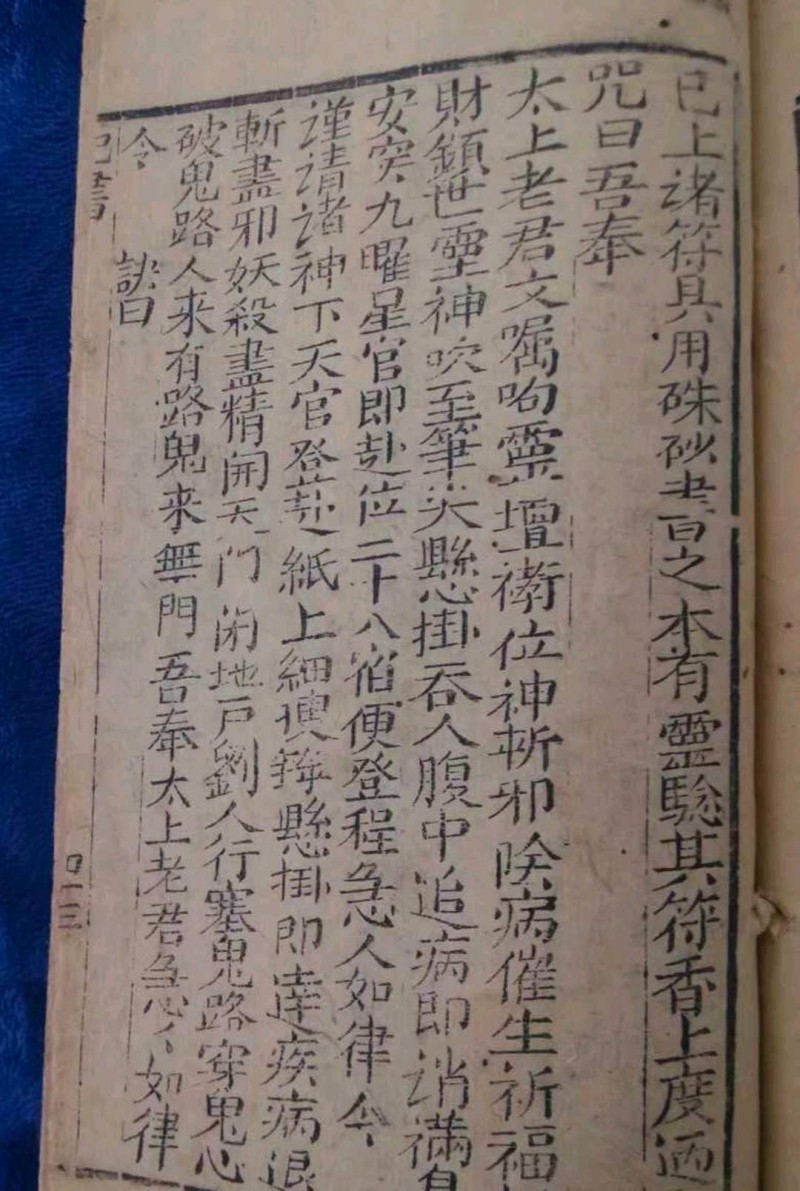 已上诸符具用硃砂書之本有靈驗其符香上度過
咒曰吾奉
太上老君文嘱咰靈壇衛位神斬邪 病催生祈福
財鎮世靈神吹至筆尖懸掛吞人腹中追病即消滿身
安突九曜星官即赴位二十八宿便登程急人如律令
谨请诸神下天官登赴紙上細 懸掛即達疾病退
斬盡邪妖殺盡精開天门闭地戶 人行塞鬼路穿鬼心
破鬼路人来有路鬼来無門吾奉太上老君急令如律
令 訣曰
四十三